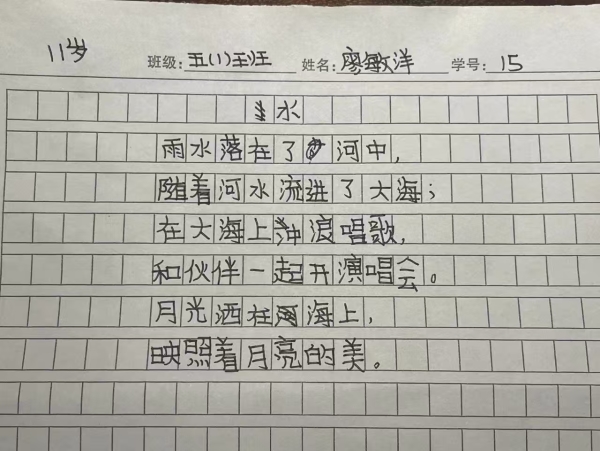 11岁 班级: 五(1)班 姓名: 廖敏洋 学号: 15
水
雨水落在了河中，
随着河水流进了大海；
在大海上冲浪唱歌，
和伙伴一起开演唱会。
月光洒在海上，
映照着月亮的美。